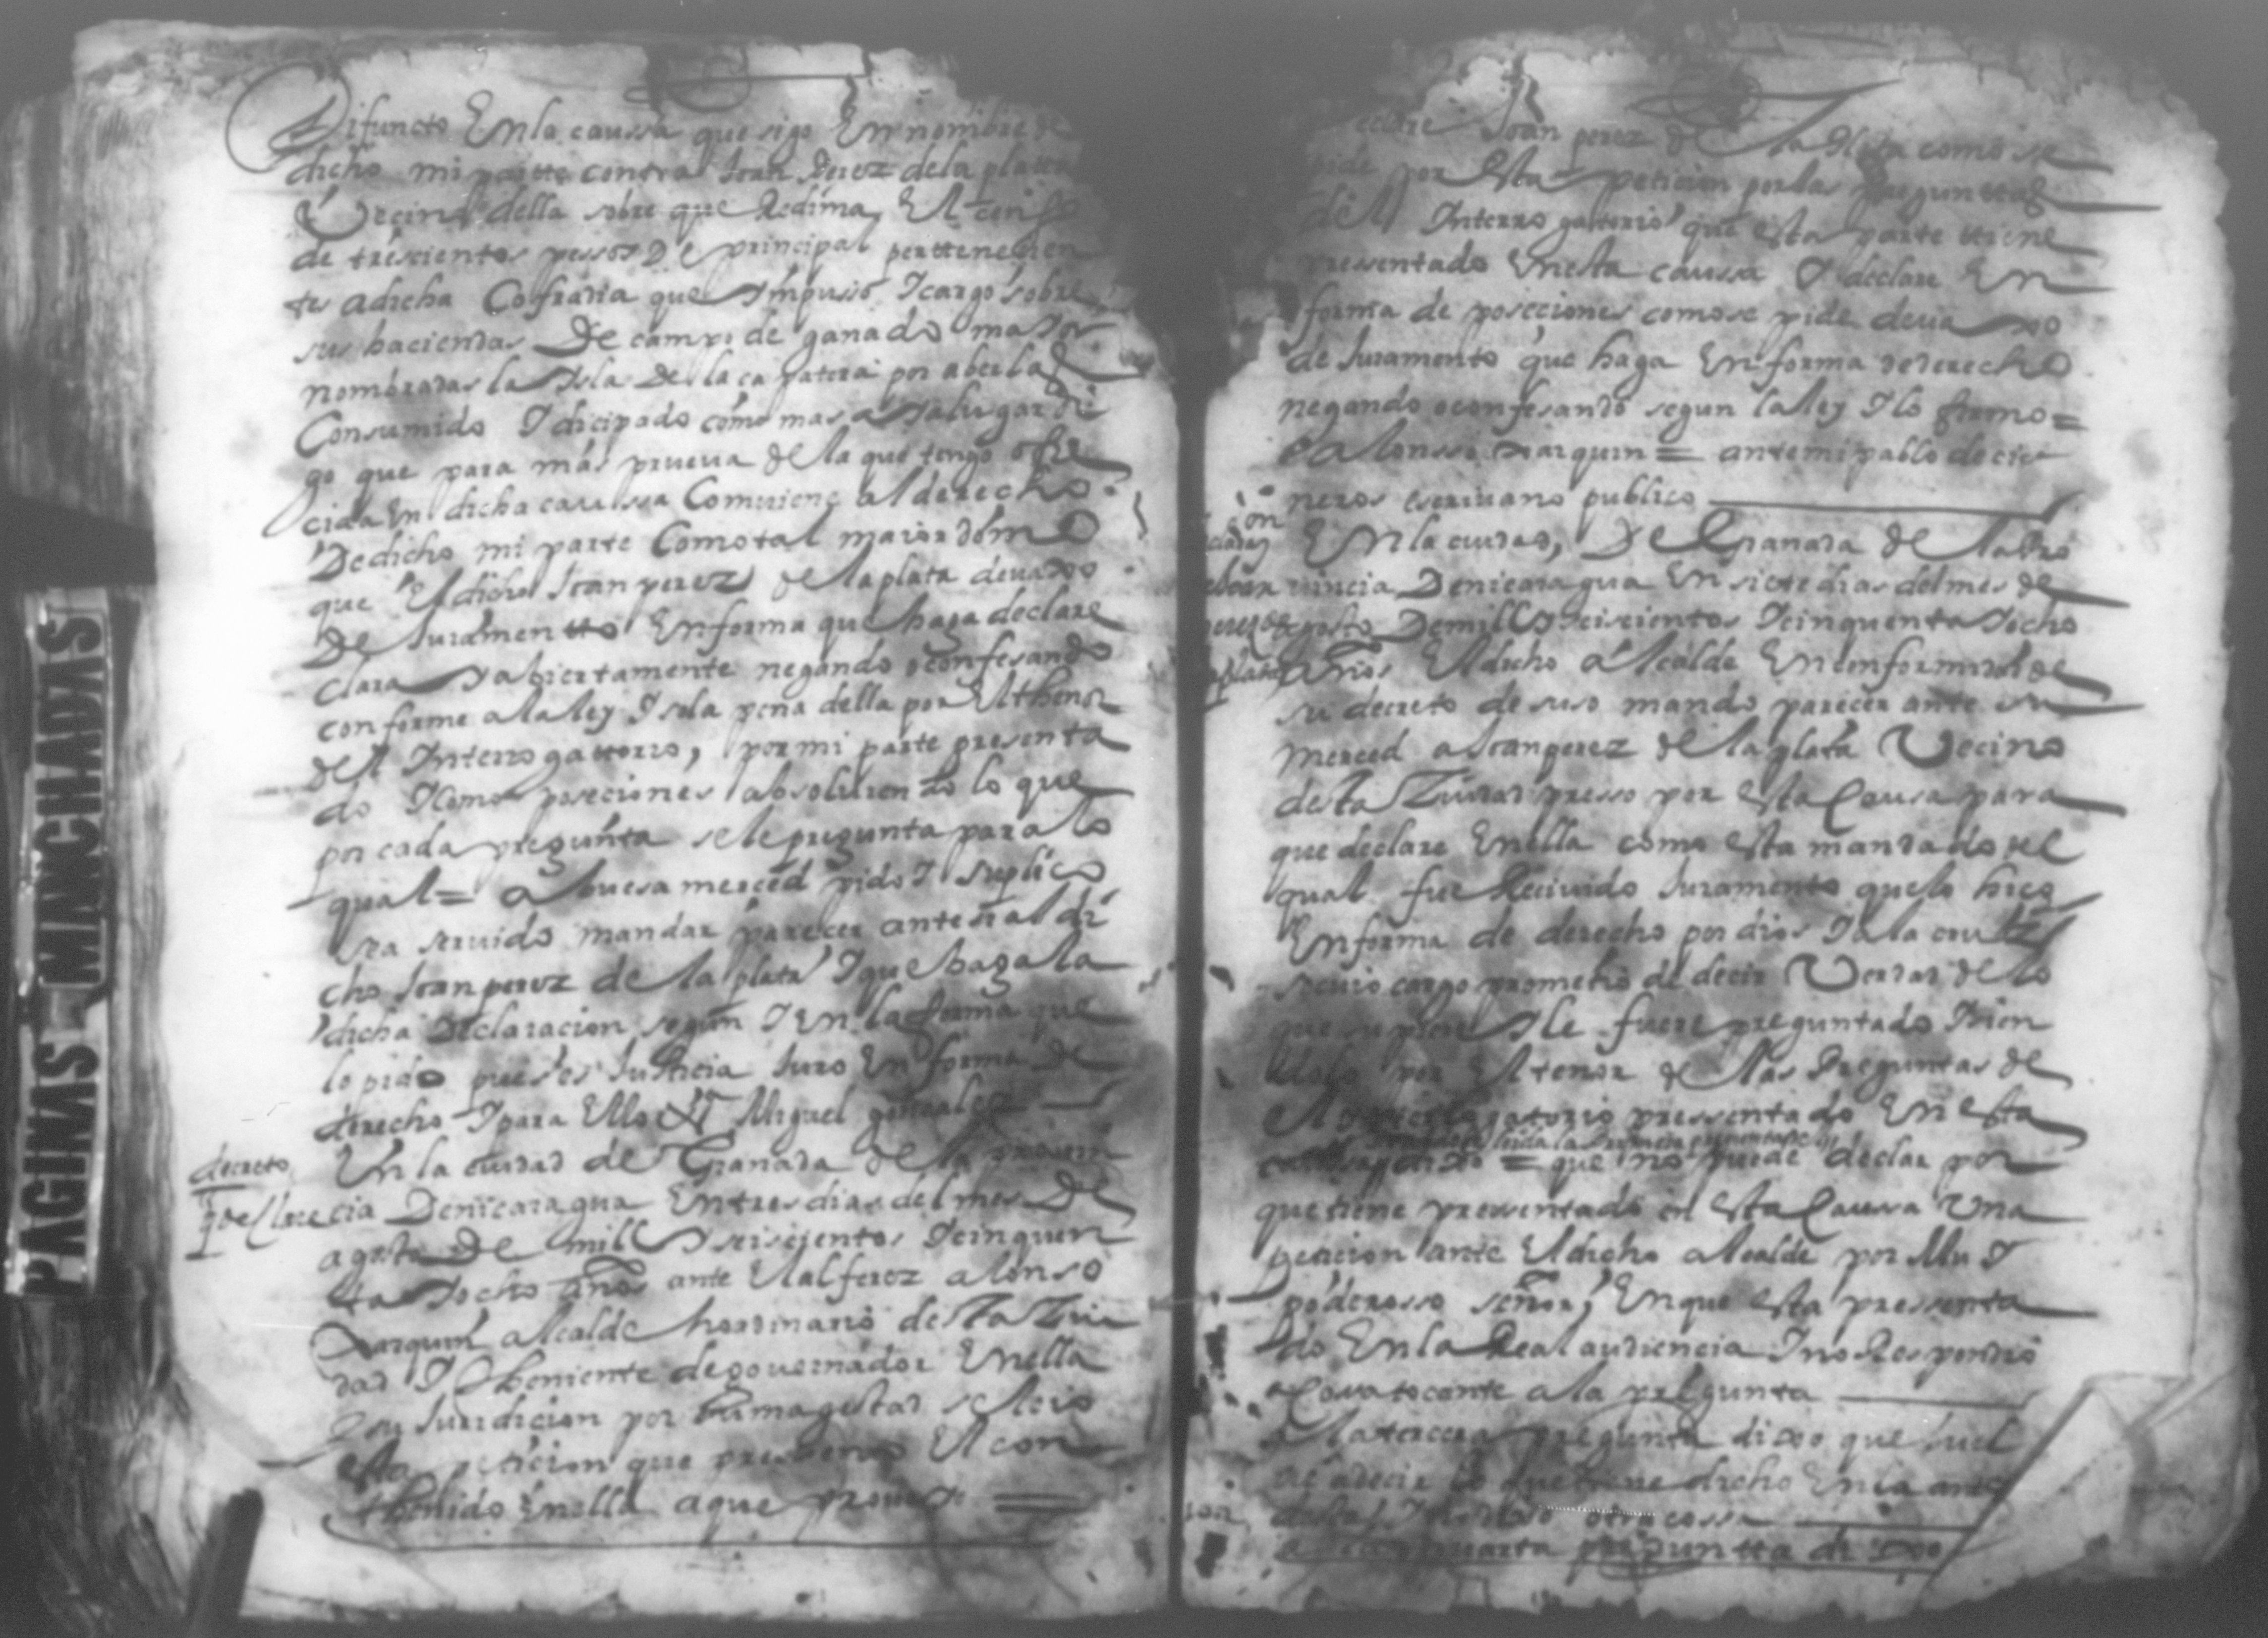 Difuncto En la caussa que sigo En nombre de
dicho mi partte contra Joan Perez de la platta
Vecino della sobre que Redima, El censo
de trescientos pessos De principal perttenecien
tes a dicha Cofradia que Ympusso Y cargo sobre
sus haciendas De campo de ganado mayor
nombradas la Ysla De la çapatera por aberlas
Consumido Y dicipado como mas a Ya lugar di
go que para más prueva de la que tengo ofre
cida En dicha caussa Comviene al derecho
De dicho mi parte Como tal maiordomo
que El dicho Joan perez de la plata devaxo
De Juramentto En forma que haga declare
clara Y abiertamente negando o confesando
conforme a la ley Y so la pena della por El thenor
del Interrogattorio, por mi parte presenta
do Y Como posiciones absolviendo lo que
por cada pregunta se le pregunta para lo
qual = a Vuesa merced pido Y suplico
sea servido mandar parecer ante si al di
cho Joan perez de la plata Y que haga la
dicha declaracion segun Y En la forma que
lo pido pues es Justicia Juro En forma de
derecho Y para Ello &ª Miguel gonsales
decreto
En la ciudad de Granada de la provin
cia De nicaragua En tres dias del mes De
agosto De mill Y seiscientos Y cinquen
ta Y ocho años ante El alferez alonso
Xarquin alcalde hordinario desta Ziu
dad Y theniente de governador En ella
Y su Juridicion por su magestad se leio
esta peticion que presento El con
thenido En ella a que proveyo =
Joan perez de la Plata como se
pide por Esta peticion por las Preguntas
del Interrogattorio que esta parte ttiene
pressentado En esta caussa Y declare En
forma de posiciones como se pide devaxo
de Juramento que haga En forma de derecho
negando o confesando segun la ley Y lo firmo =
alonsso xarquin = ante mi pablo de cis
neros escrivano publico
En la ciudad, De Granada de la Pro
vincia De nicaragua En siete dias del mes de
agosto De mill Y seiscientos Y cinquenta Y ocho
años El dicho alcalde En conformidad de
su decreto de suso mando parecer ante su
merced a Joan perez de la plata Vecino
desta Ziudad presso por esta Causa para
que declare En ella como esta mandado del
qual fue Recivido Juramento que lo hiço
En forma de derecho por dios Y a la cruz
so cuio cargo prometio de decir Verdad de lo
que supiere Y le fuere preguntado Y sien
dolo por El tenor de las Preguntas de
el Interrogatorio pressentado En esta
leida la primera pregunta
= que no puede declar por
que tiene pressentado en esta Caussa Una
peticion ante El dicho alcalde por Mui
poderosso señor, En que esta pressenta
do En la Real audiencia Y no Respondio
a Cossa tocante a la pregunta
a la tercera pregunta dixo que buel
be a decir lo que tiene dicho En la ante
desta, otra cossa
a la quarta preguntta dixo